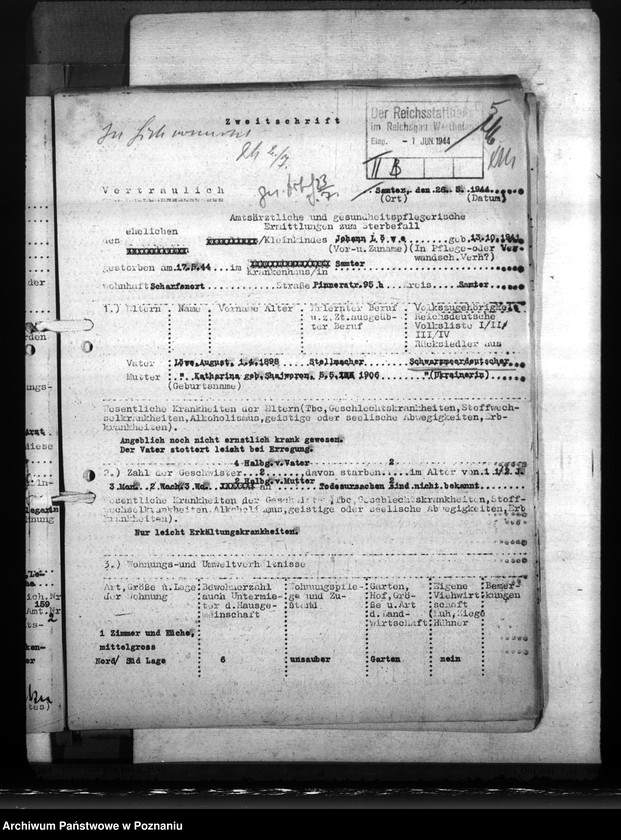 Zweitschrift
Der Reichsstatthalter
im Reichsgau Wartheland
Eing. - 1 JUN. 1944
II B
Vertraulich
Samter, den 26. 5. 1944
(Ort) (Datum)
Amtsärztliche und gesundheitspflegerische
Ermittlungen zum Sterbefall
ehelichen
des /Kleinkindes Johann Löwe geb. 13.10.1941
(Vor-u. Zuname) (In Pflege-oder Verwandsch. Verh?)
gestorben am 17.5.44 im Samter
Krankenhaus/in
wohnhaft Scharfenort Straße Pinnerstr. 95 b Kreis Samter
1.) Eltern Name Vorname Alter Erlernter Beruf Volkszugehörigkeit
u.z.Zt.ausgeüb- Reichsdeutsche
ter Beruf Volksliste I/II/
III/IV
Rücksiedler aus
Vater Löwe, August, 1.4.1898 Stellmacher Schwarzmeerdeutscher
Mutter " Katharina geb. 5.5. 1906 "(Ukrainerin)
(Geburtsname)
Wesentliche Krankheiten der Eltern(Tbc,Geschlechtskrankheiten,Stoffwech-
selkrankheiten,Alkoholismus,geistige oder seelische Abwegigkeiten,Erb-
krankheiten).
Angeblich noch nicht ernstlich krank gewesen.
Der Vater stottert leicht bei Erregung.
4 Halbg.v.Vater 2
2.) Zahl der Geschwister 2 ,davon starben im Alter v.m. 1 1/2 J.
2 Halbg.v.Mutter 2
3 Mon. 2 Woch. 3 Wo. an Todesursachen sind nicht bekannt.
Wesentliche Krankheiten der Geschwister(Tbc,Geschlechtskrankheiten,Stoff-
wechselkrankheiten,Alkoholismus,geistige oder seelische Abwegigkeiten,Erb
krankheiten).
Nur leicht Erkältungskrankheiten.
3.) Wohnungs-und Umweltverhältnisse
Art,Größe u.Lage Bewohnerzahl Wohnungspfle- Garten, Eigene Bemer-
der Wohnung auch Untermie- ge und Zu- Hof, Grö- Viehwirt- kungen
ter d.Hausge- stand ße u.Art schaft
meinschaft d.Land- Kuh,Ziege
wirtschaft Hühner
1 Zimmer und Küche,
mittelgross
Nord/ Süd Lage 6 unsauber Garten nein
159
Archiwum Państwowe w Poznaniu